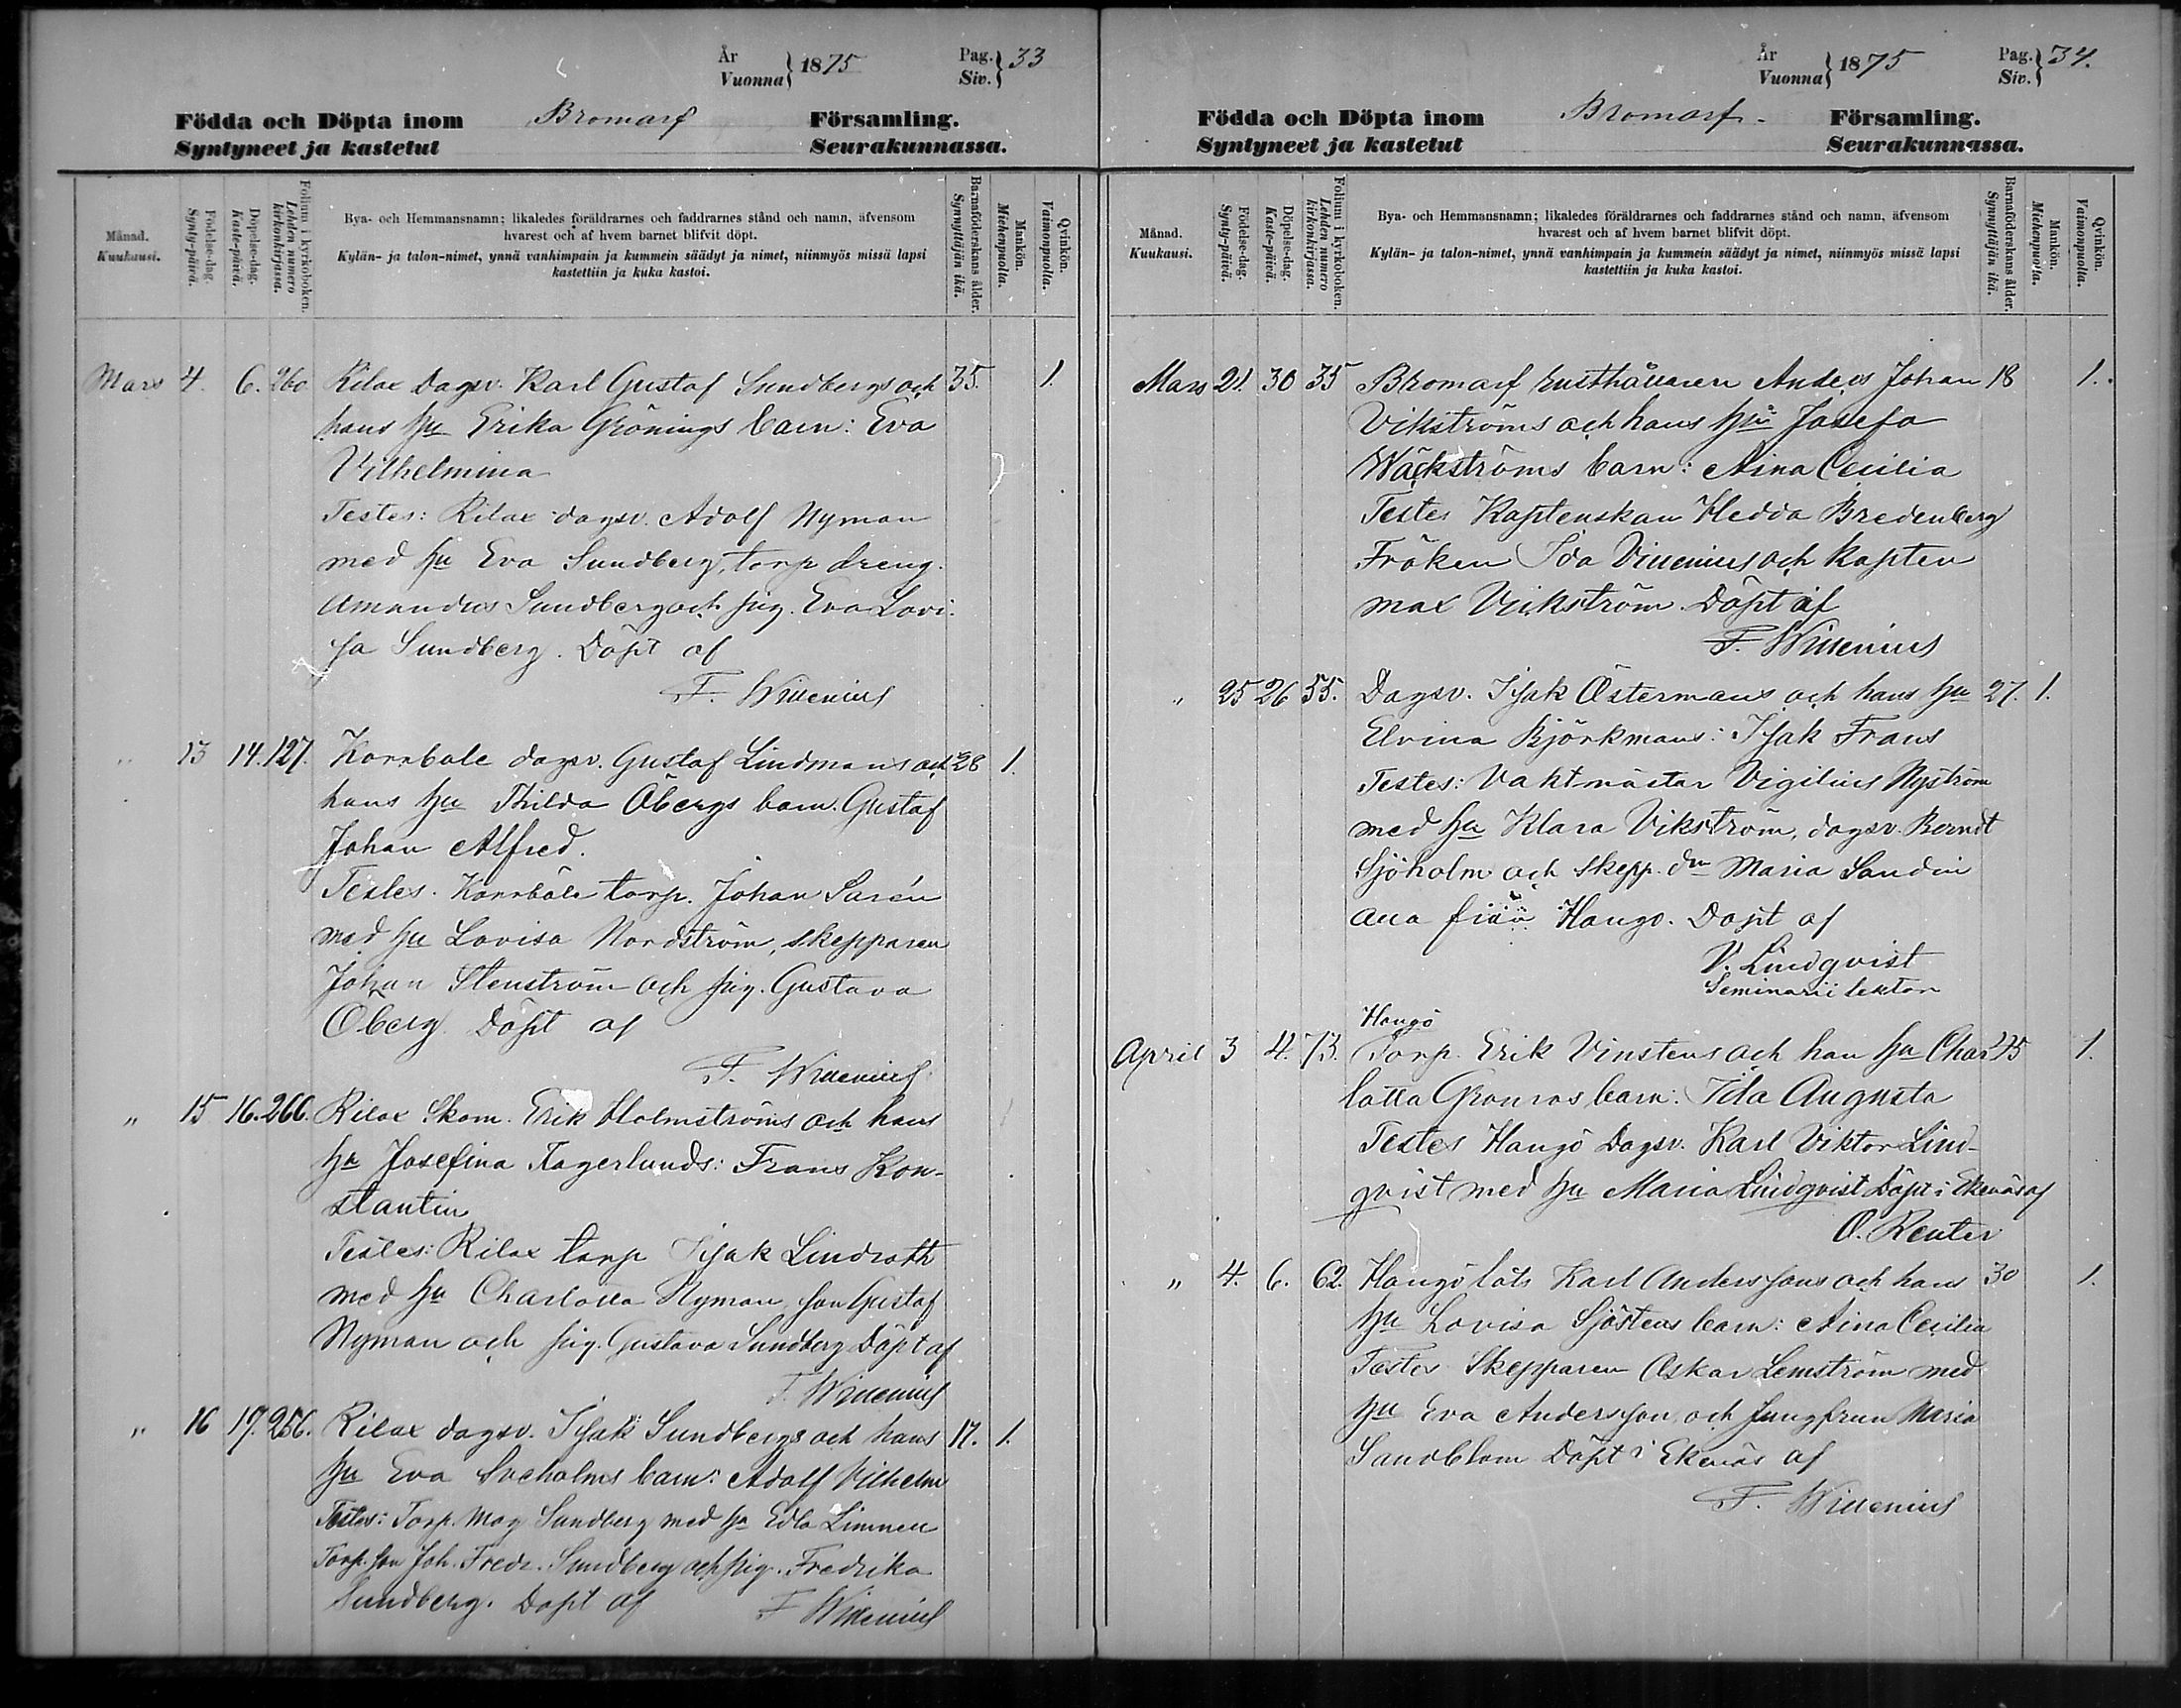 År
Vuonna} 1875
Pag.
Siv.} 33
Födda och Döpta inom Bromarf Församling.
Syntyneet ja kastetut Seurakunnassa.
Månad.
Kuukausi.
Födelse-dag.
Synty-päivä.
Döpelse-dag.
Kaste-päivä.
Folium i kyrkoboken.
Lehden numero kirkonkirjassa.
Bya- och Hemmansnamn; likaledes föräldrarnes och faddrarnes stånd och namn, äfvensom
hvarest och af hvem barnet blifvit döpt.
Kylän- ja talon-nimet, ynnä vanhimpain ja kummein säädyt ja nimet, niinmyös missä lapsi
kastettiin ja kuka kastoi.
Barnaföderskans ålder.
Synnyttäjän ikä.
Mankön.
Miehenpuolta.
Qvinkön.
Vaimonpuolta.
Mars 4. 6. 260 Rilax Dagsv. Karl Gustaf Sundbergs och 35. 1.
hans hu Erika Grönings barn: Eva
Vilhelmina
Testes: Rilax dagsv. Adolf Nyman
med hu Eva Sundberg, torp dreng.
Amandus Sundberg och pig. Eva Lovi-
sa Sundberg. Döpt af
F. Willenius
" 13 14. 127. Korrbole dagsv. Gustaf Lindmans och 28 1.
hans hu Thilda Öbergs barn. Gustaf
Johan Alfred.
Testes. Korrböle torp. Johan Sarén
med hu Lovisa Nordström, skepparen
Johan Stenström och pig. Gustava
Öberg. Döpt af
F. Willenius
" 15 16. 266. Rilax Skom. Erik Holmströms och hans
hu Josefina Fagerlunds: Frans Kon-
stantin
Testes: Rilax torp Isak Lindroth
med hu Charlotta Nyman, son Gustaf
Nyman och pig. Gustava Sundberg Döpt af
F. Willenius
" 16 17. 256. Rilax dagsv. Isak Sundbergs och hans 17. 1.
hu Eva barn: Adolf Vilhelm
Testes: Torp. Mag Sundberg med hu Edla
Torp. son Joh. Fredr. Sundberg och pig. Fredrika
Sundberg. Döpt af F Willenius
År
Vuonna} 1875
Pag.
Siv.} 34.
Födda och Döpta inom Bromarf. Församling.
Syntyneet ja kastetut Seurakunnassa.
Månad.
Kuukausi.
Födelse-dag.
Synty-päivä.
Döpelse-dag.
Kaste-päivä.
Folium i kyrkoboken.
Lehden numero kirkonkirjassa.
Bya- och Hemmansnamn; likaledes föräldrarnes och faddrarnes stånd och namn, äfvensom
hvarest och af hvem barnet blifvit döpt.
Kylän- ja talon-nimet, ynnä vanhimpain ja kummein säädyt ja nimet, niinmyös missä lapsi
kastettiin ja kuka kastoi.
Barnaföderskans ålder.
Synnyttäjän ikä.
Mankön.
Miehenpuolta.
Qvinkön.
Vaimonpuolta.
Mars 21. 30 35 Bromarf rusthållaren Anders Johan 18 1.
Vikströms och hans hu Josefa
Wäckströms barn: Aina Cecilia
Testes Kaptenskan Hedda Bredenberg
Fröken Ida Villenius och Kapten
Max Vickström. Döpt af
F. Willenius
" 25 26 55. Dagsv. Isak Östermans och hans hu 27. 1.
Elvina Björkmans: Isak Frans
Testes: Vaktmästar Vigilius Nyström
med hu Klara Vikström, dagsv. Berndt
Sjöholm och skepp. dn Maria Sandin
alla från Hangö. Döpt af
V. Lindqvist
Seminarii lektor
Hangö
April 3 4. 73. Torp. Erik Vinstens och han hu Char 25 1.
lotta Granros barn: Ida Augusta
Testes Hangö Dagsv. Karl Viktor Lind-
qvist med hu Maria Lindqvist Döpt i Ekenäs af
O. Reuter
" 4. 6. 62. Hangö lots Karl Anderssons och hans 30 1.
hu Lovisa Sjöstens barn: Aina Cecilia
Testes Skepparen Oskar Lemström med
hu Eva Andersson och Jungfrun Maria
Sandblom Döpt i Ekenäs af
F. Willenius